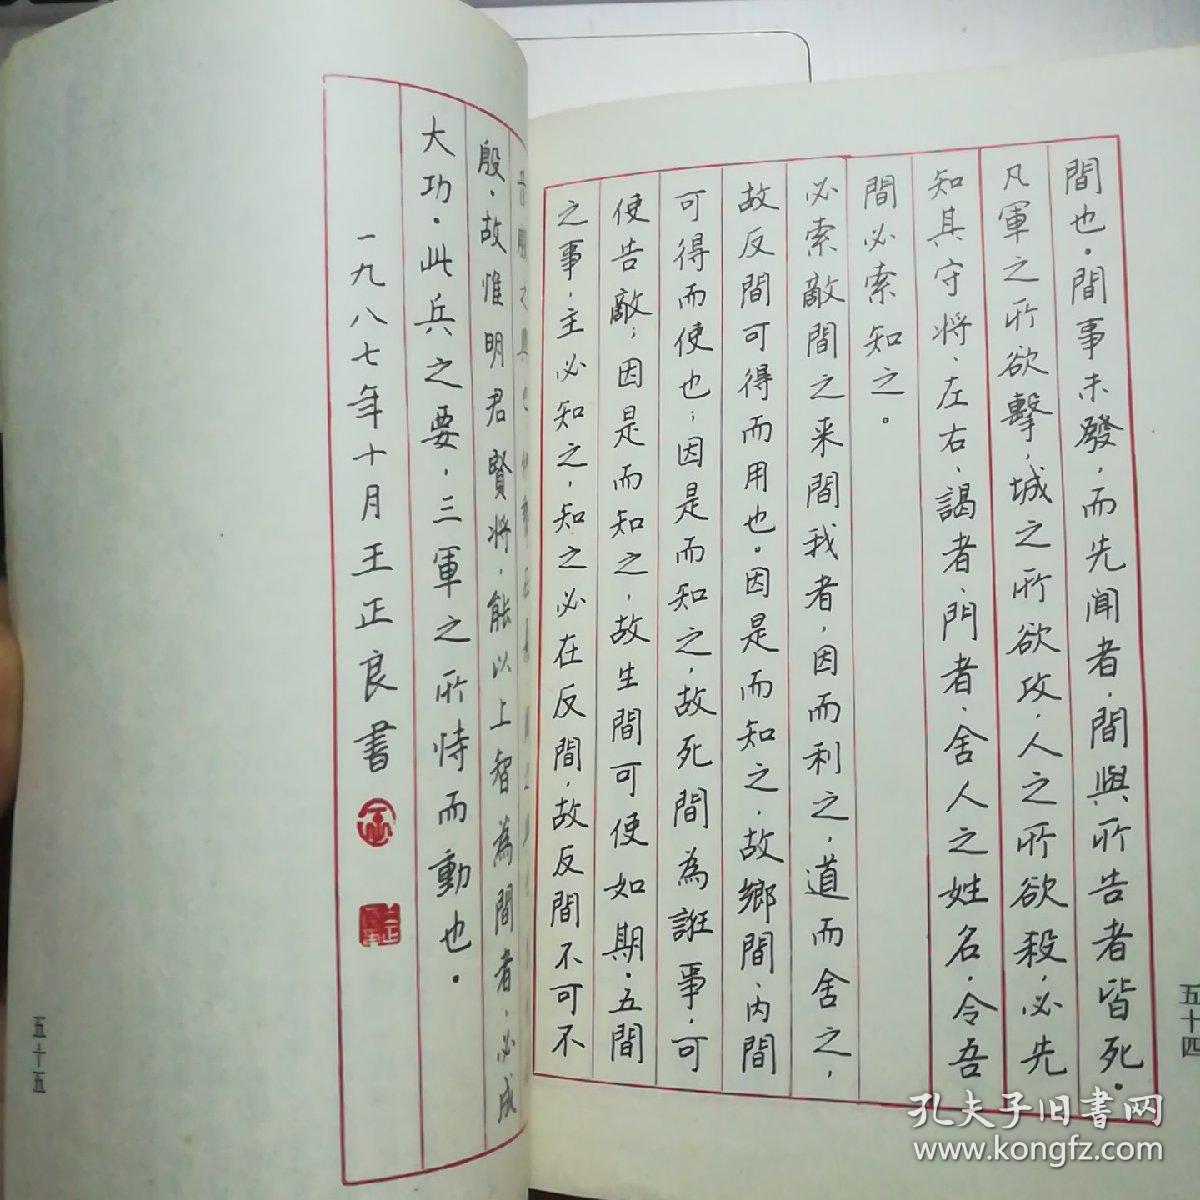 間也。間事未發，而先闻者，間與所告者皆死。
凡軍之所欲擊，城之所欲攻，人之所欲殺，必先
知其守将、左右、謁者、門者、舍人之姓名，令吾
間必索知之。
必索敵間之来間我者，因而利之，道而舍之，
故反間可得而用也。因是而知之，故鄉間、内間
可得而使也；因是而知之，故死間為誑事，可
使告敵；因是而知之，故生間可使如期。五間
之事，主必知之，知之必在反間，故反間不可不
五十四
殷。故惟明君賢将，能以上智為間者，必成
大功。此兵之要，三軍之所恃而動也。
一九八七年十月王正良書
五十五
孔夫子旧書网
www.kongfz.com